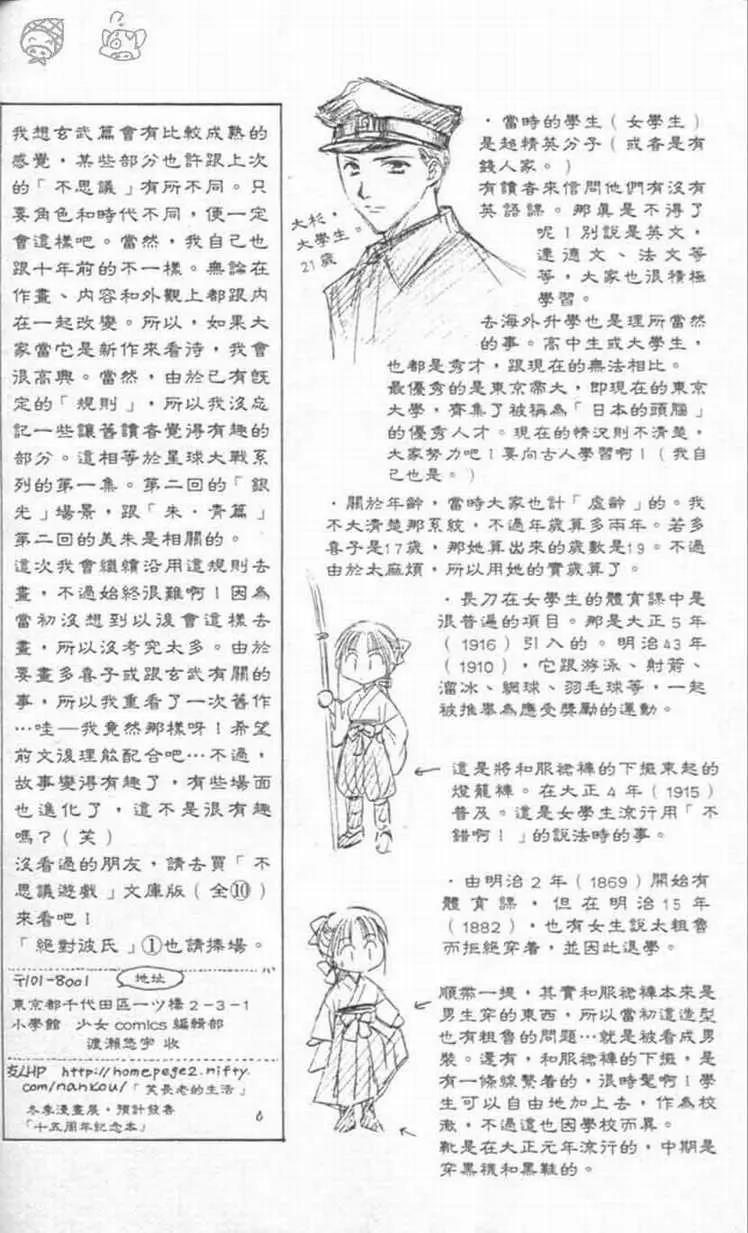 我想玄武篇會有比較成熟的
感覺，某些部分也許跟上次
的「不思議」有所不同。只
要角色和時代不同，便一定
會這樣吧。當然，我自己也
跟十年前的不一樣。無論在
作畫、內容和外觀上都跟內
在一起改變。所以，如果大
家當它是新作來看待，我會
很高興。當然，由於已有旣
定的「規則」，所以我沒忘
記一些讓舊讀者覺得有趣的
部分。這相等於星球大戰系
列的第一集。第二回的「銀
光」場景，跟「朱·青篇」
第二回的美朱是相關的。
這次我會繼續沿用這規則去
畫，不過始終很難啊！因為
當初沒想到以後會這樣去
畫，所以沒考究太多。由於
要畫多喜子或跟玄武有關的
事，所以我重看了一次舊作
…哇—我竟然那樣呀！希望
前文後理能配合吧…不過，
故事變得有趣了，有些場面
也進化了，這不是很有趣
嗎？（笑）
沒看過的朋友，請去買「不
思議遊戲」文庫版（全⑩）
來看吧！
「絕對波氏」①也請捧場。
〒101-8001 地址
東京都千代田區一ツ橋2-3-1
小學館 少女comics編輯部
渡瀨悠宇 收
友人HP http://homepage2.nifty.
com/nankou/「笑長老的生活」
冬季漫畫展·預計發售
「十五周年紀念本」
6
大杉，
大學生。
21歲
·當時的學生（女學生）
是超精英分子（或者是有
錢人家。）
有讀者來信問他們有沒有
英語課。那真是不得了
呢！別說是英文，
連德文、法文等
等，大家也很積極
學習。
去海外升學也是理所當然
的事。高中生或大學生，
也都是秀才，跟現在的無法相比。
最優秀的是東京帝大，即現在的東京
大學，齊集了被稱為「日本的頭腦」
的優秀人才。現在的情況則不清楚，
大家努力吧！要向古人學習啊！（我自
己也是。）
·關於年齡，當時大家也計「虛齡」的。我
不大清楚那系統，不過年歲算多兩年。若多
喜子是17歲，那她算出來的歲數是19。不過
由於太麻煩，所以用她的實歲算了。
·長刀在女學生的體育課中是
很普遍的項目。那是大正5年
（1916）引入的。明治43年
（1910），它跟游泳、射箭、
溜冰、網球、羽毛球等，一起
被推舉為應受獎勵的運動。
這是將和服裙褲的下襬束起的
燈籠褲。在大正4年（1915）
普及。這是女學生流行用「不
錯啊！」的說法時的事。
·由明治2年（1869）開始有
體育課，但在明治15年
（1882），也有女生說太粗魯
而拒絕穿着，並因此退學。
順帶一提，其實和服裙褲本來是
男生穿的東西，所以當初這造型
也有粗魯的問題…就是被看成男
裝。還有，和服裙褲的下襬，是
有一條線繫着的，很時髦啊！學
生可以自由地加上去，作為校
徽，不過這也因學校而異。
靴是在大正元年流行的，中期是
穿黑襪和黑鞋的。